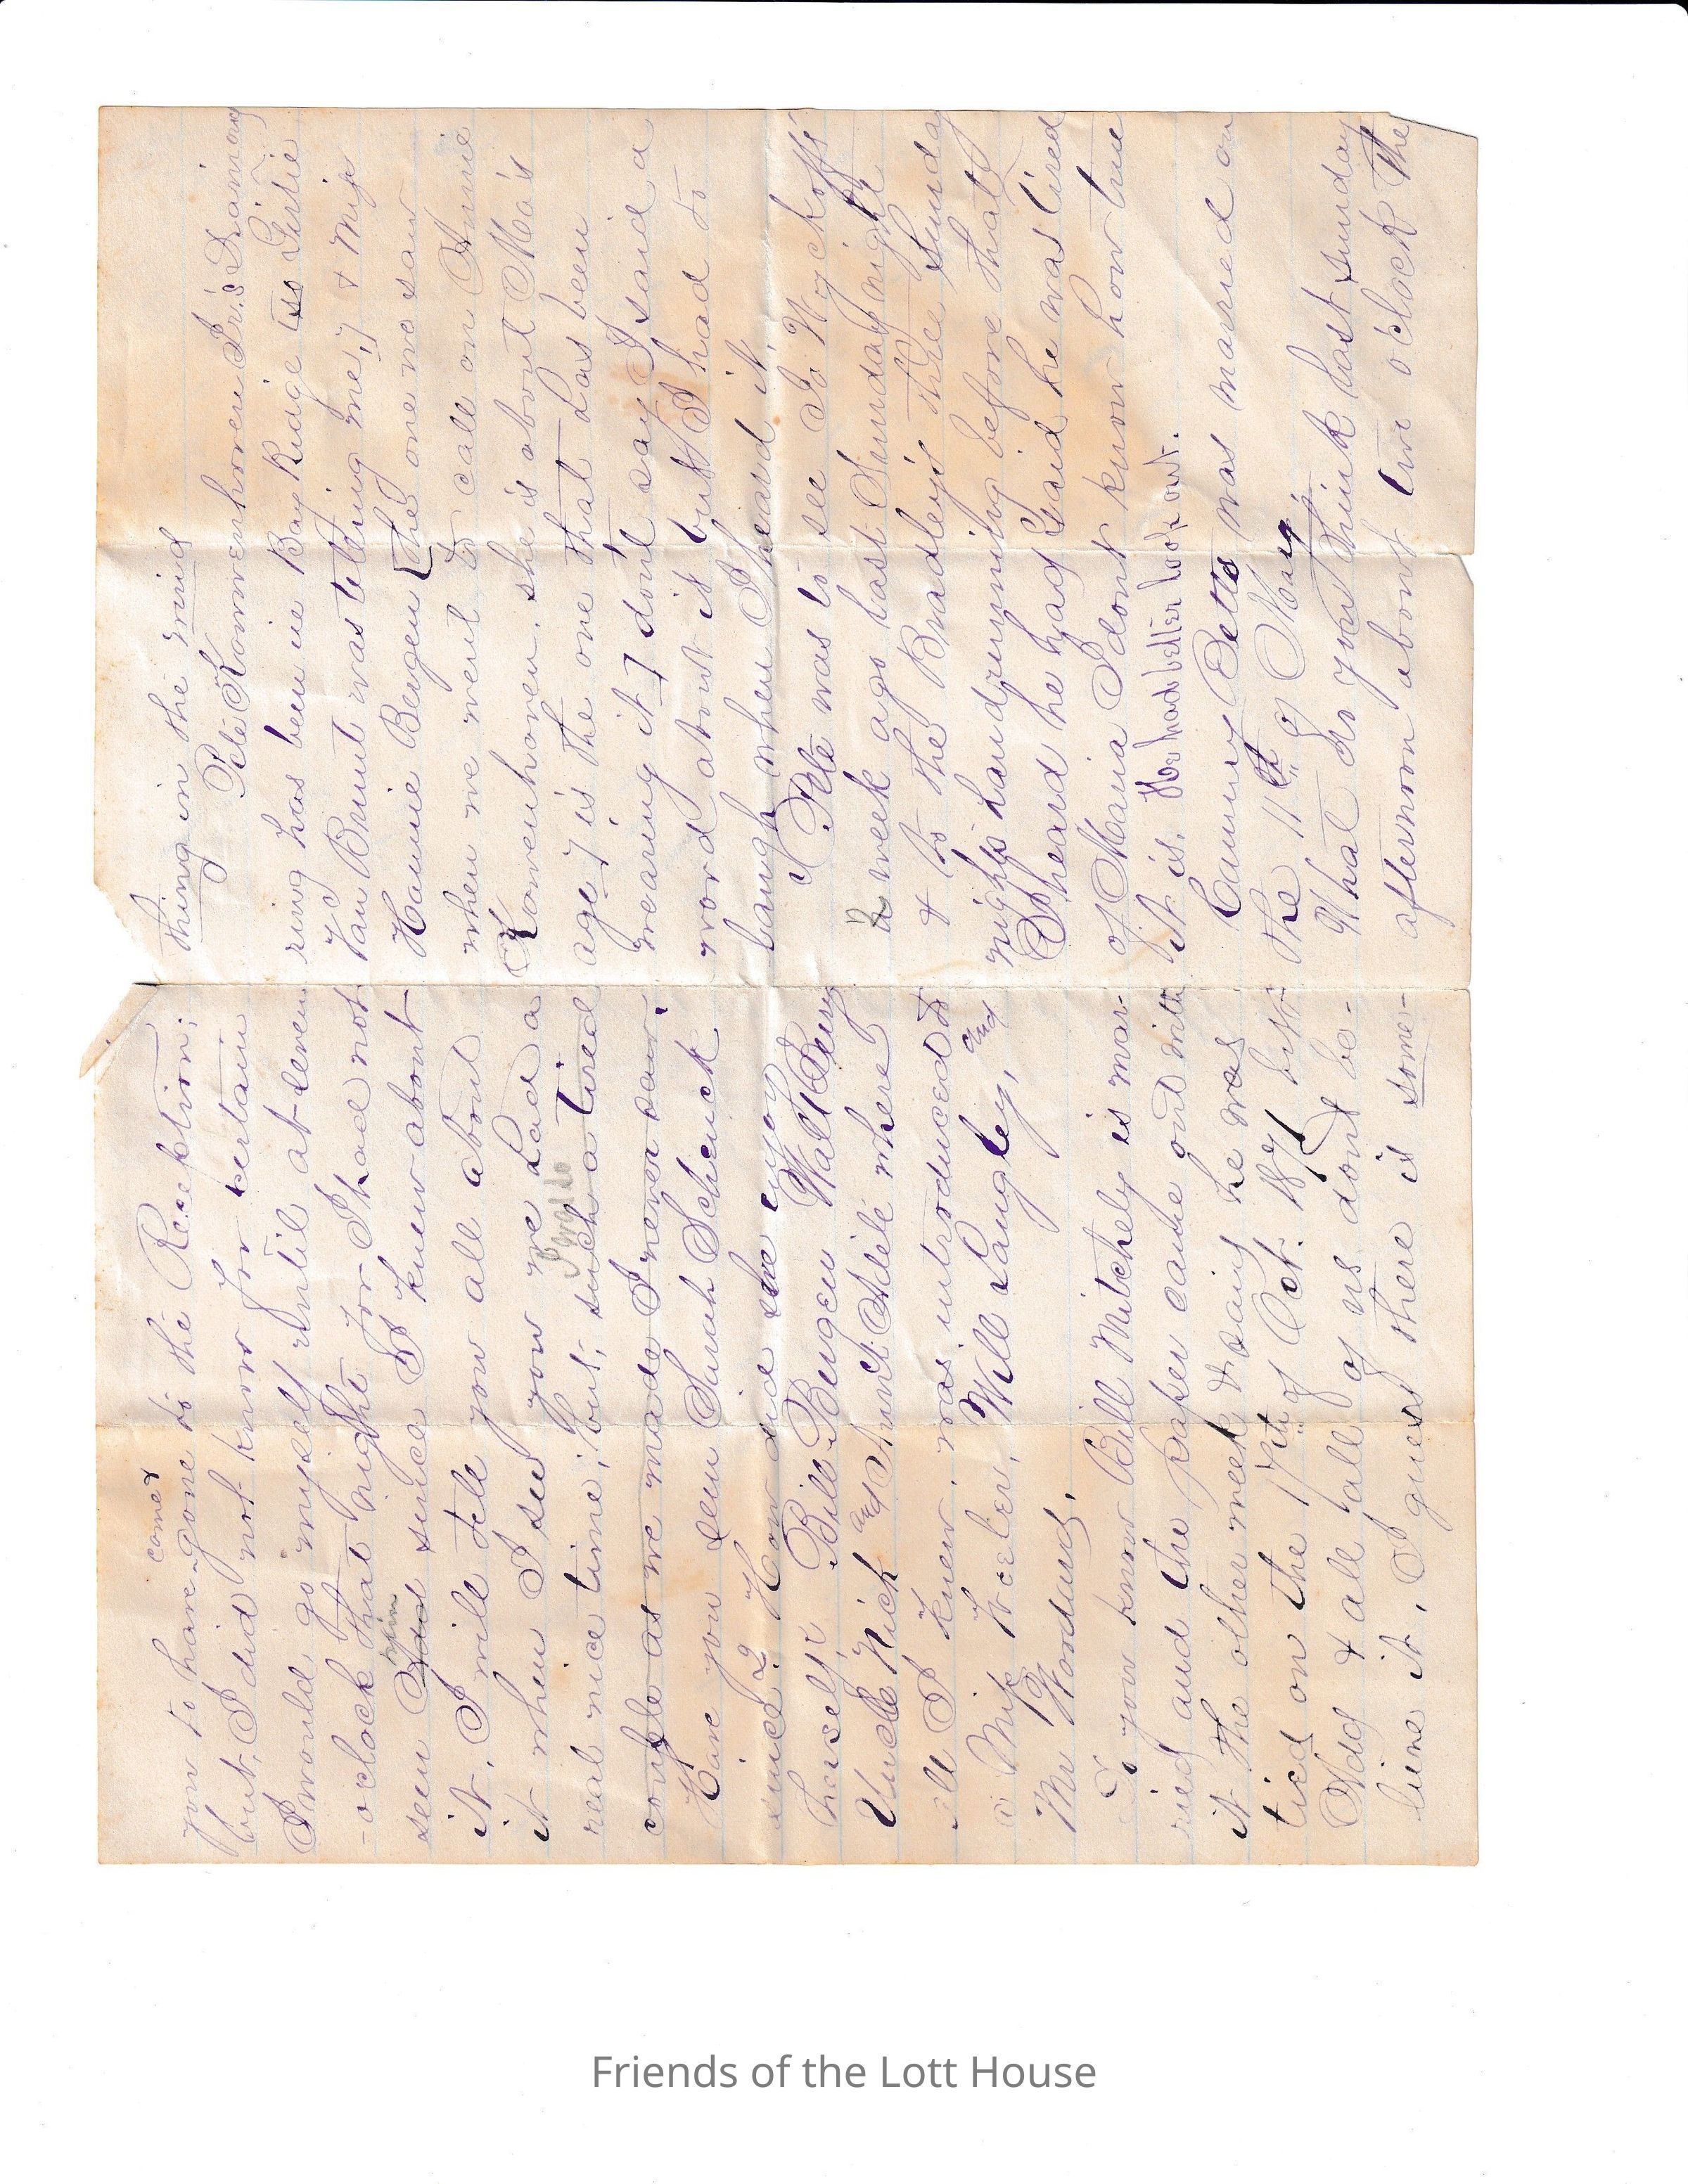 come &
you to have gone to the Reception;
but, I did not know for certain
I would go myself until at-seven
-oclock that night for I had not
seen Add since I knew about
it. I will tell you all about
it when I see you we had a
real nice time; but, such a tired
couple as we made I never saw.
Have you seen Sarah Schenck
since? How did she enjoy
herself. Bill Bergen Walt Berry
Uncle Nick and Aunt Adile where
all I knew. was introduced to
a Miss Weeler, Will Langley, and
Mr Woodward.
Do you know Bill Mitchely is mar-
ried and the paper came out with
it the other week & saing he was
tied on the 17th of Oct. 1871 but
Add & all all of us dont be-
lieve it, I guess there is some-
thing in the wind
Pete Kowenhoven Dri's Daining
ring has been in Bay Ridge so Girtie
Van Brunt was telling me, & Mip
Hamie Bergen [the one we saw
when we went to call on Annie
Kowenhoven. she is about Ma's
age] is the one that has been
wearing it] don't say I said a
word about it but I had to
laugh when I heard it.
Pete was to see Jo Wyckoffs
a week ago last Sunday night
& to the Bradley's three Sunday
nights handrunning before that
I heard he hyad said he was tired
of Maria I dont know how true
it is. He had better look out.
Cammy Detto was married on
the 11th of May.
What do you think last Sunday
afternoon about two o'clock the
Friends of the Lott House